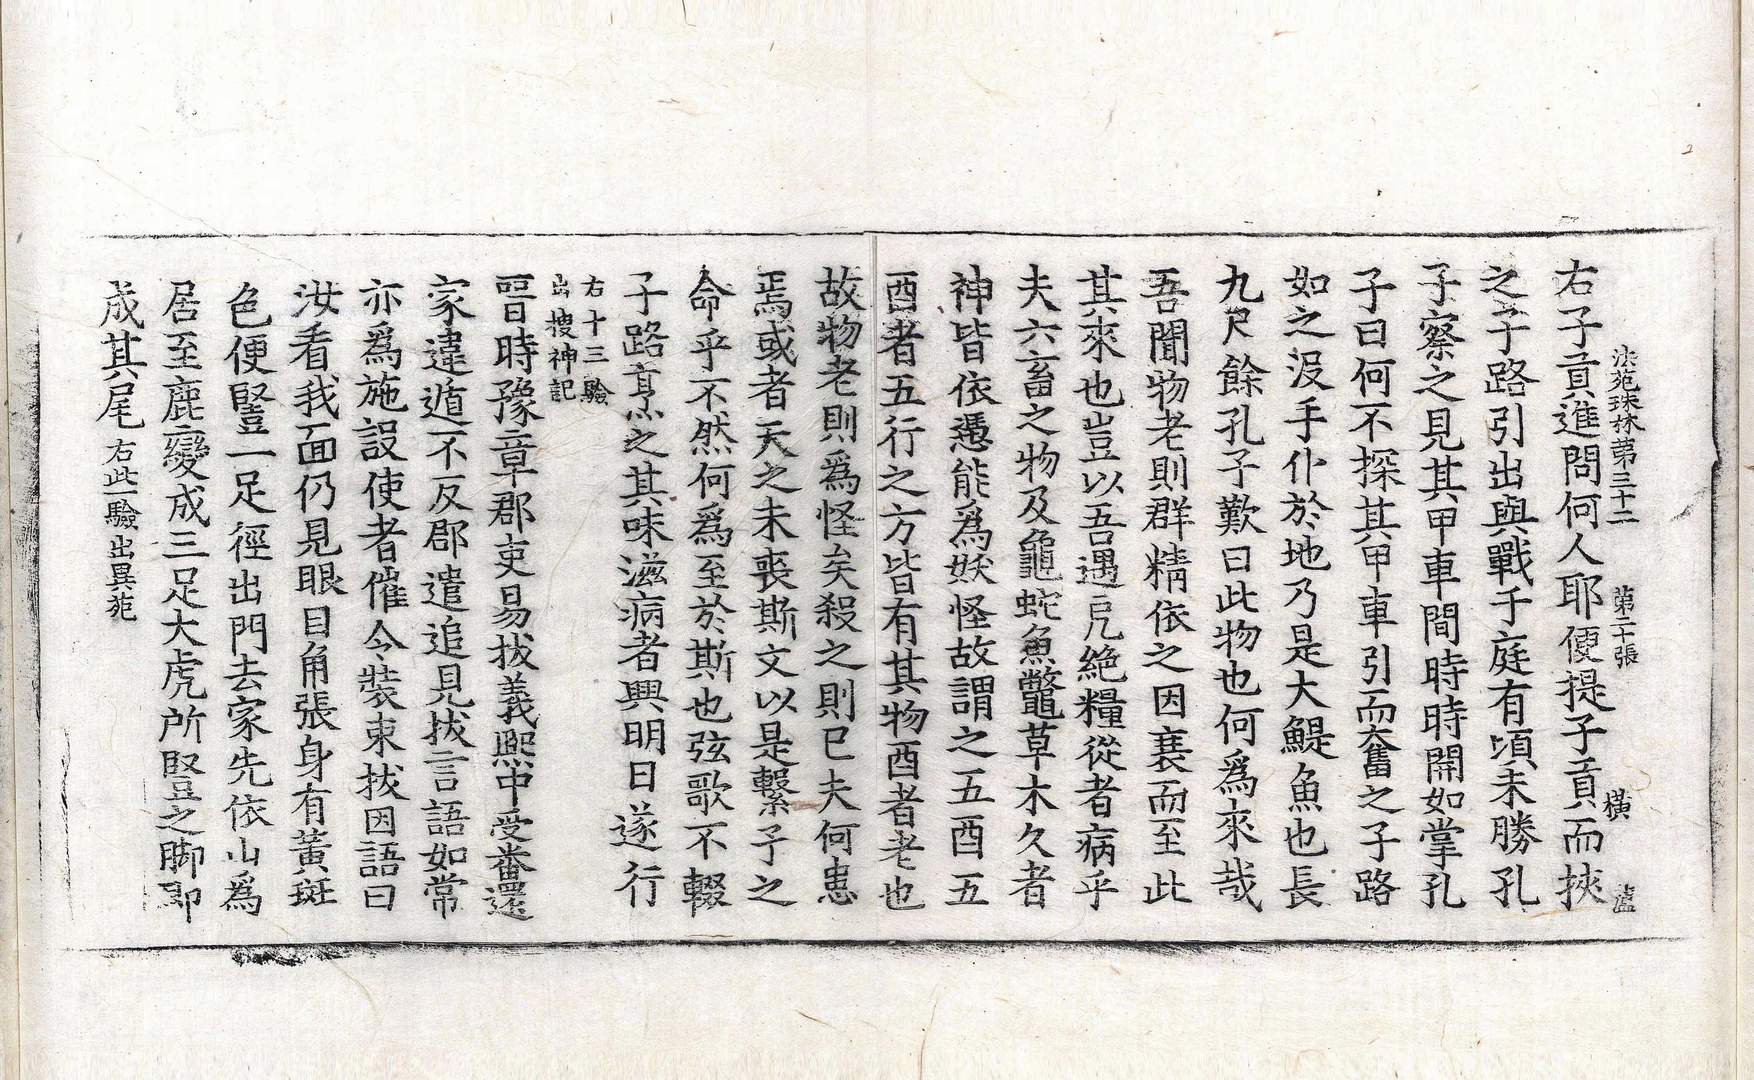 法苑珠林第三十二 第二十張 橫
右子貢進問何人耶便提子貢而挾
之子路引出與戰于庭有頃未勝孔
子察之見其甲車間時時開如掌孔
子曰何不探其甲車引而奮之子路
如之沒手仆於地乃是大鯷魚也長
九尺餘孔子歎曰此物也何爲來哉
吾聞物老則群精依之因衰而至此
其來也豈以吾遇戹絶糧從者病乎
夫六畜之物及龜蛇魚鼈草木久者
神皆依憑能爲妖怪故謂之五酉五
酉者五行之方皆有其物酉者老也
故物老則爲怪矣殺之則已夫何患
焉或者天之未喪斯文以是繫予之
命乎不然何爲至於斯也弦歌不輟
子路烹之其味滋病者興明日遂行
右十三驗
出搜神記
晉時豫章郡吏易拔義熙中受番還
家違遁不反郡遣追見拔言語如常
亦爲施設使者催令裝束拔因語曰
汝看我面仍見眼目角張身有黃斑
色便豎一足徑出門去家先依山爲
居至麓變成三足大虎所豎之脚即
成其尾 右此一驗出異苑